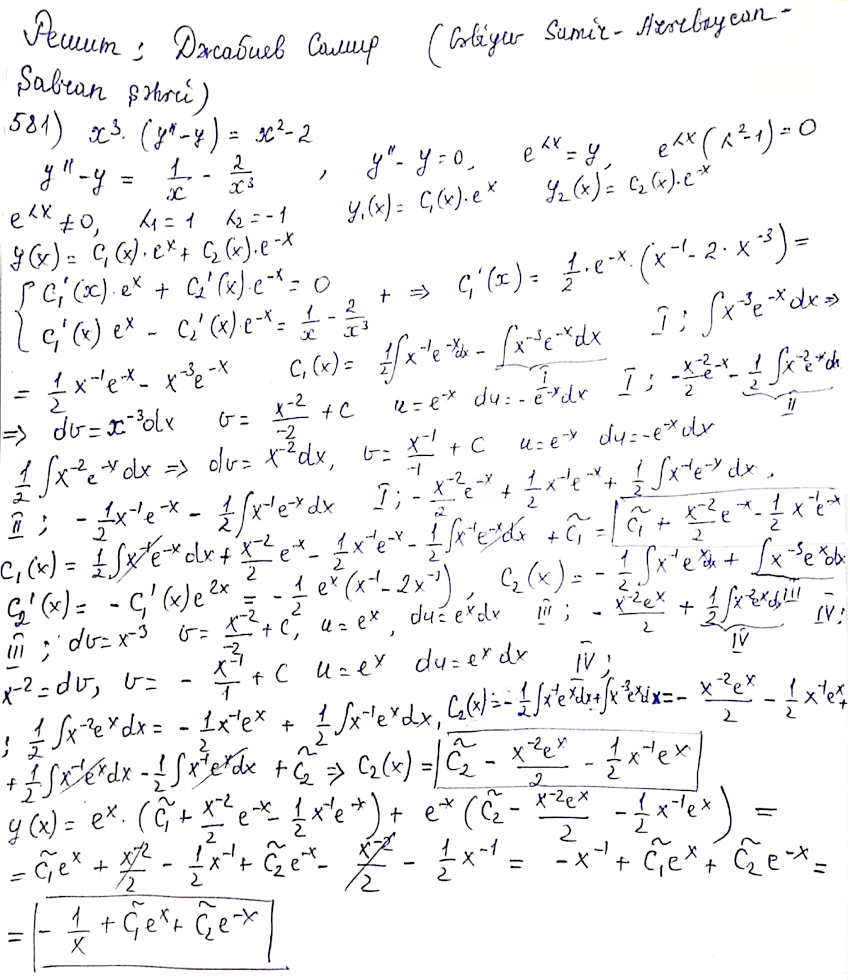 Решит; Джабиев Самир (Cəbiyev Samir - Azerbaycan -
Şabran şəhri)
581) x³·(y"-y) = x²-2
y"-y = 1/x - 2/x³ , y"-y=0, e^λx = y, e^λx(λ²-1)=0
e^λx ≠0, λ₁=1 λ₂=-1 y₁(x)= C₁(x)·e^x y₂(x)= C₂(x)·e^-x
y(x)= C₁(x)·e^x + C₂(x)·e^-x
{ C₁'(x)·e^x + C₂'(x)·e^-x = 0 + ⇒ C₁'(x) = 1/2·e^-x·(x^-1 - 2·x^-3) =
C₁'(x) e^x - C₂'(x)·e^-x = 1/x - 2/x³ I; ∫x^-3 e^-x dx ⇒
= 1/2 x^-1 e^-x - x^-3 e^-x C₁(x) = 1/2∫x^-1 e^-x dx - ∫x^-3 e^-x dx I
⇒ dv = x^-3 dx v = x^-2/-2 + c u = e^-x du = -e^-x dx I; -x^-2/2 e^-x - 1/2∫x^-2 e^-x dx II
1/2∫x^-2 e^-x dx ⇒ dv = x^-2 dx, v = x^-1/-1 + c u=e^-x du=-e^-x dx
II; -1/2 x^-1 e^-x - 1/2∫x^-1 e^-x dx I; -x^-2/2 e^-x + 1/2 x^-1 e^-x + 1/2∫x^-1 e^-x dx,
C₁(x) = 1/2∫x^-1 e^-x dx + x^-2/2 e^-x - 1/2 x^-1 e^-x - 1/2∫x^-1 e^-x dx + C̃₁ = C̃₁ + x^-2/2 e^-x - 1/2 x^-1 e^-x
C₂'(x) = -C₁'(x)e^2x = -1/2 e^x(x^-1 - 2x^-3), C₂(x) = -1/2∫x^-1 e^x dx + ∫x^-3 e^x dx III
III; dv = x^-3 v = x^-2/-2 + c, u = e^x, du = e^x dx III; -x^-2 e^x/2 + 1/2∫x^-2 e^x dx IV IV;
x^-2 = dv, v = -x^-1/1 + c u = e^x du = e^x dx IV;
; 1/2∫x^-2 e^x dx = -1/2 x^-1 e^x + 1/2∫x^-1 e^x dx, C₂(x) = -1/2∫x^-1 e^x dx + ∫x^-3 e^x dx = -x^-2 e^x/2 - 1/2 x^-1 e^x +
+ 1/2∫x^-1 e^x dx - 1/2∫x^-1 e^x dx + C̃₂ ⇒ C₂(x) = C̃₂ - x^-2 e^x/2 - 1/2 x^-1 e^x
y(x) = e^x·(C̃₁ + x^-2/2 e^-x - 1/2 x^-1 e^-x) + e^-x(C̃₂ - x^-2 e^x/2 - 1/2 x^-1 e^x) =
= C̃₁e^x + x^-2/2 - 1/2 x^-1 + C̃₂e^-x - x^-2/2 - 1/2 x^-1 = -x^-1 + C̃₁e^x + C̃₂e^-x =
= -1/x + C̃₁e^x + C̃₂e^-x